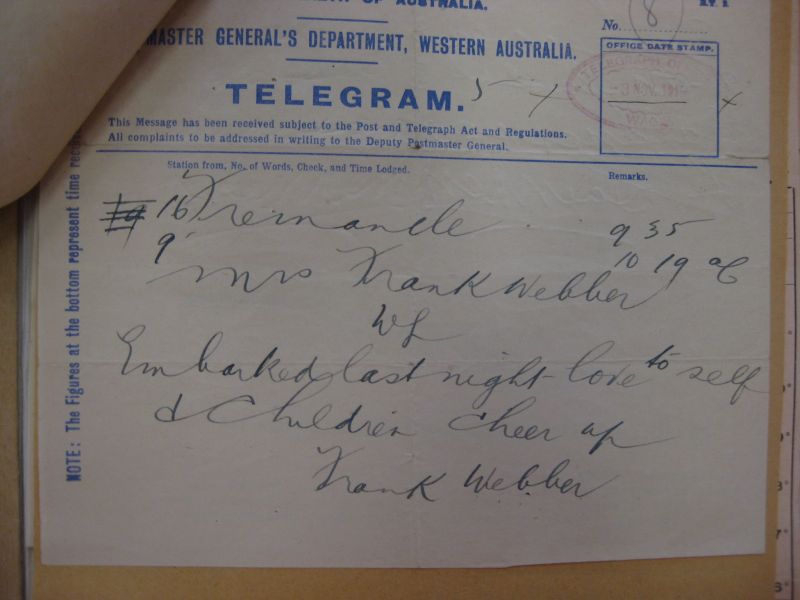 OF AUSTRALIA.
MASTER GENERAL'S DEPARTMENT, WESTERN AUSTRALIA.
No. 8
OFFICE DATE STAMP.
TELEGRAM.
NOV. 191
This Message has been received subject to the Post and Telegraph Act and Regulations.
All complaints to be addressed in writing to the Deputy Postmaster General.
Station from, No. of Words, Check, and Time Lodged.
Remarks.
16 Fremantle 9 35
9 10 19
Mrs Frank Webber
Embarked last night love to self
& Children cheer up
Frank Webber
NOTE: The Figures at the bottom represent time